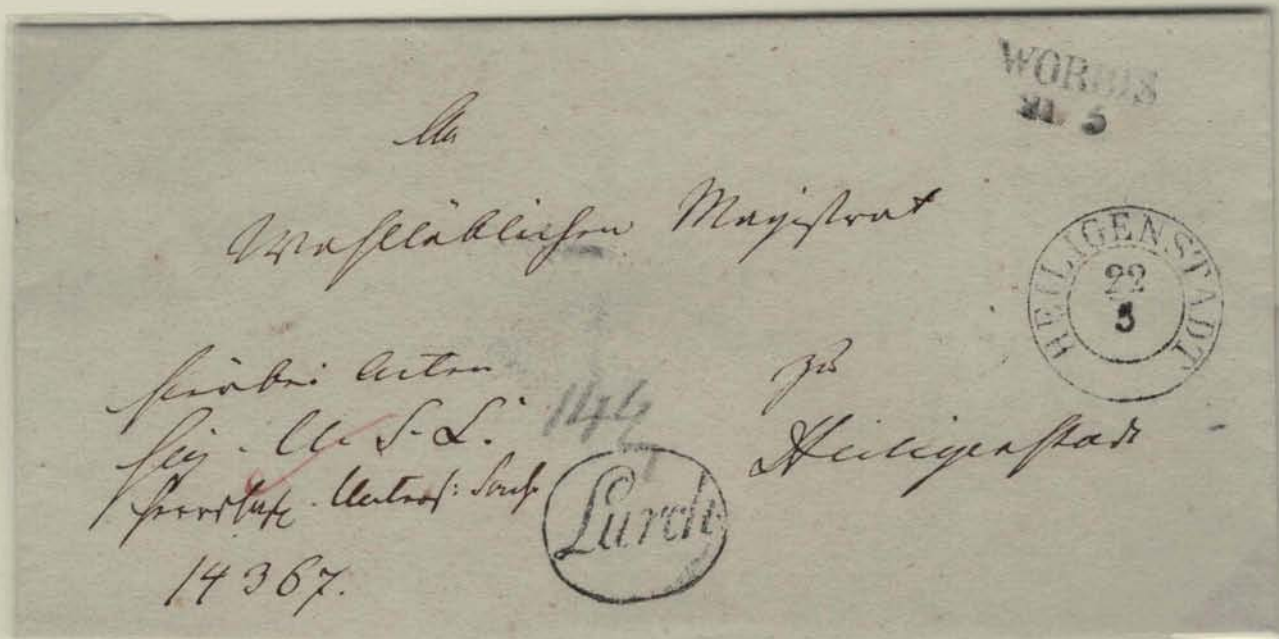 WORBIS
21 5
An
Wohllöblichen Magistrat
HEILIGENSTADT
22
5
hierbei Acten
zu
Heiligenstadt
Lurch
14367.